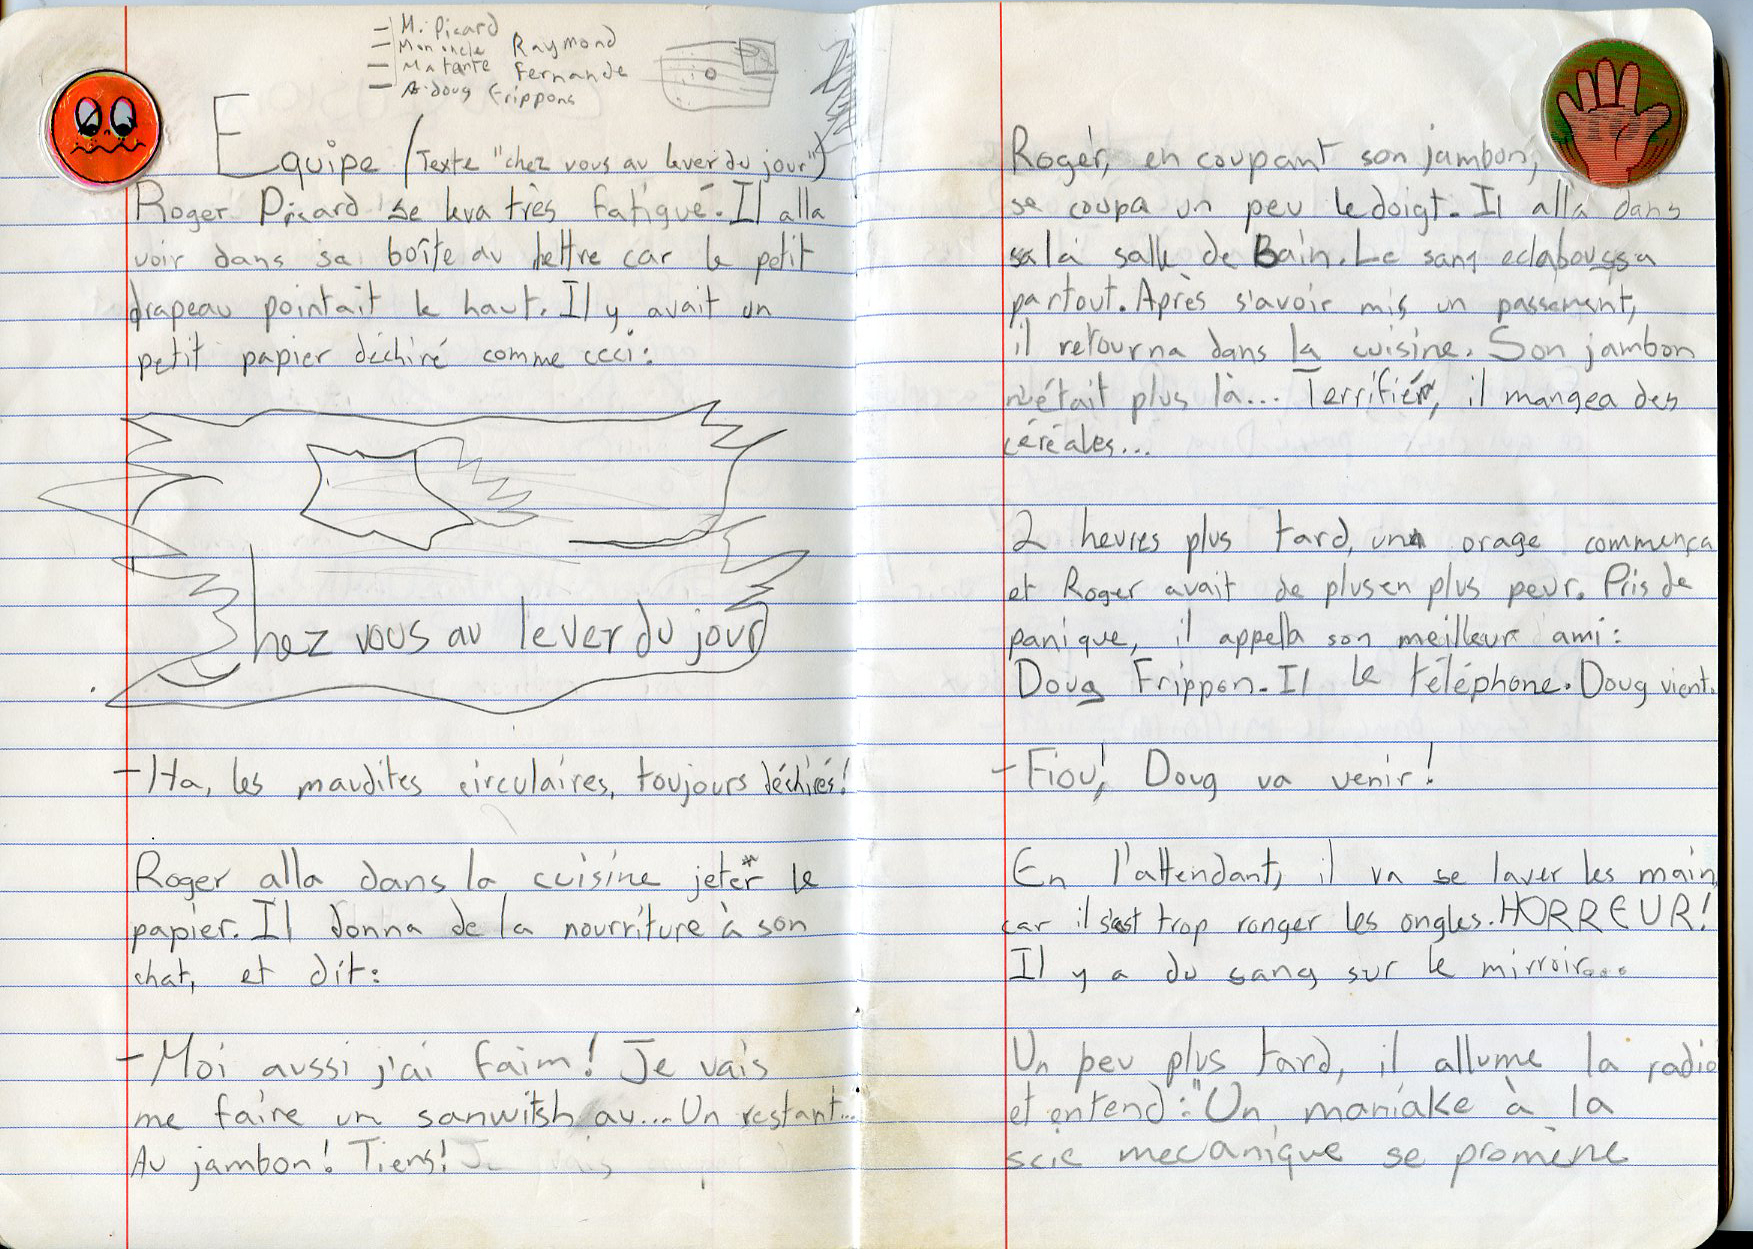 - M. Picard
- Mon oncle Raymond
- Ma tante Fernande
- Doug Frippons
Equipe (Texte "chez vous au lever du jour")
Roger Picard se leva très fatigué. Il alla
voir dans sa boîte au lettre car le petit
drapeau pointait le haut. Il y avait un
petit papier déchiré comme ceci:
hez vous au lever du jour
- Ha, les maudites circulaires, toujours déchirés!
Roger alla dans la cuisine jeter le
papier. Il donna de la nourriture à son
chat, et dit:
- Moi aussi j'ai faim! Je vais
me faire un sanwitsh au... Un restant...
Au jambon! Tiens!
Roger, en coupant son jambon,
se coupa un peu le doigt. Il alla dans
la salle de Bain. Le sang eclaboussa
partout. Après s'avoir mis un passement,
il retourna dans la cuisine. Son jambon
n'était plus là... Terrifiér, il mangea des
céréales...
2 heures plus tard, un orage commença
et Roger avait de plus en plus peur. Pris de
panique, il appella son meilleur ami:
Doug Frippon. Il le téléphone. Doug vient.
- Fiou! Doug va venir!
En l'attendant, il va se laver les main
car il s'est trop ronger les ongles. HORREUR!
Il y a du sang sur le mirroir...
Un peu plus tard, il allume la radio
et entend: "Un maniake à la
scie mecanique se promène